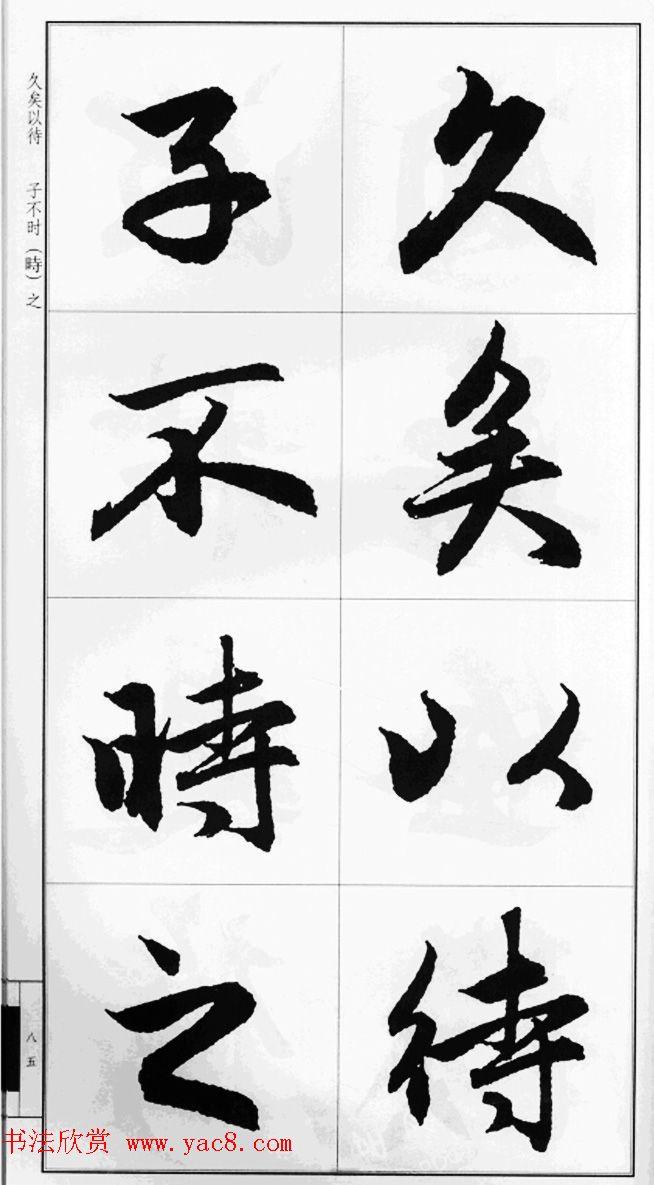 久矣以待
子不時之
久矣以待 子不时（時）之
八五
书法欣赏 www.yac8.com